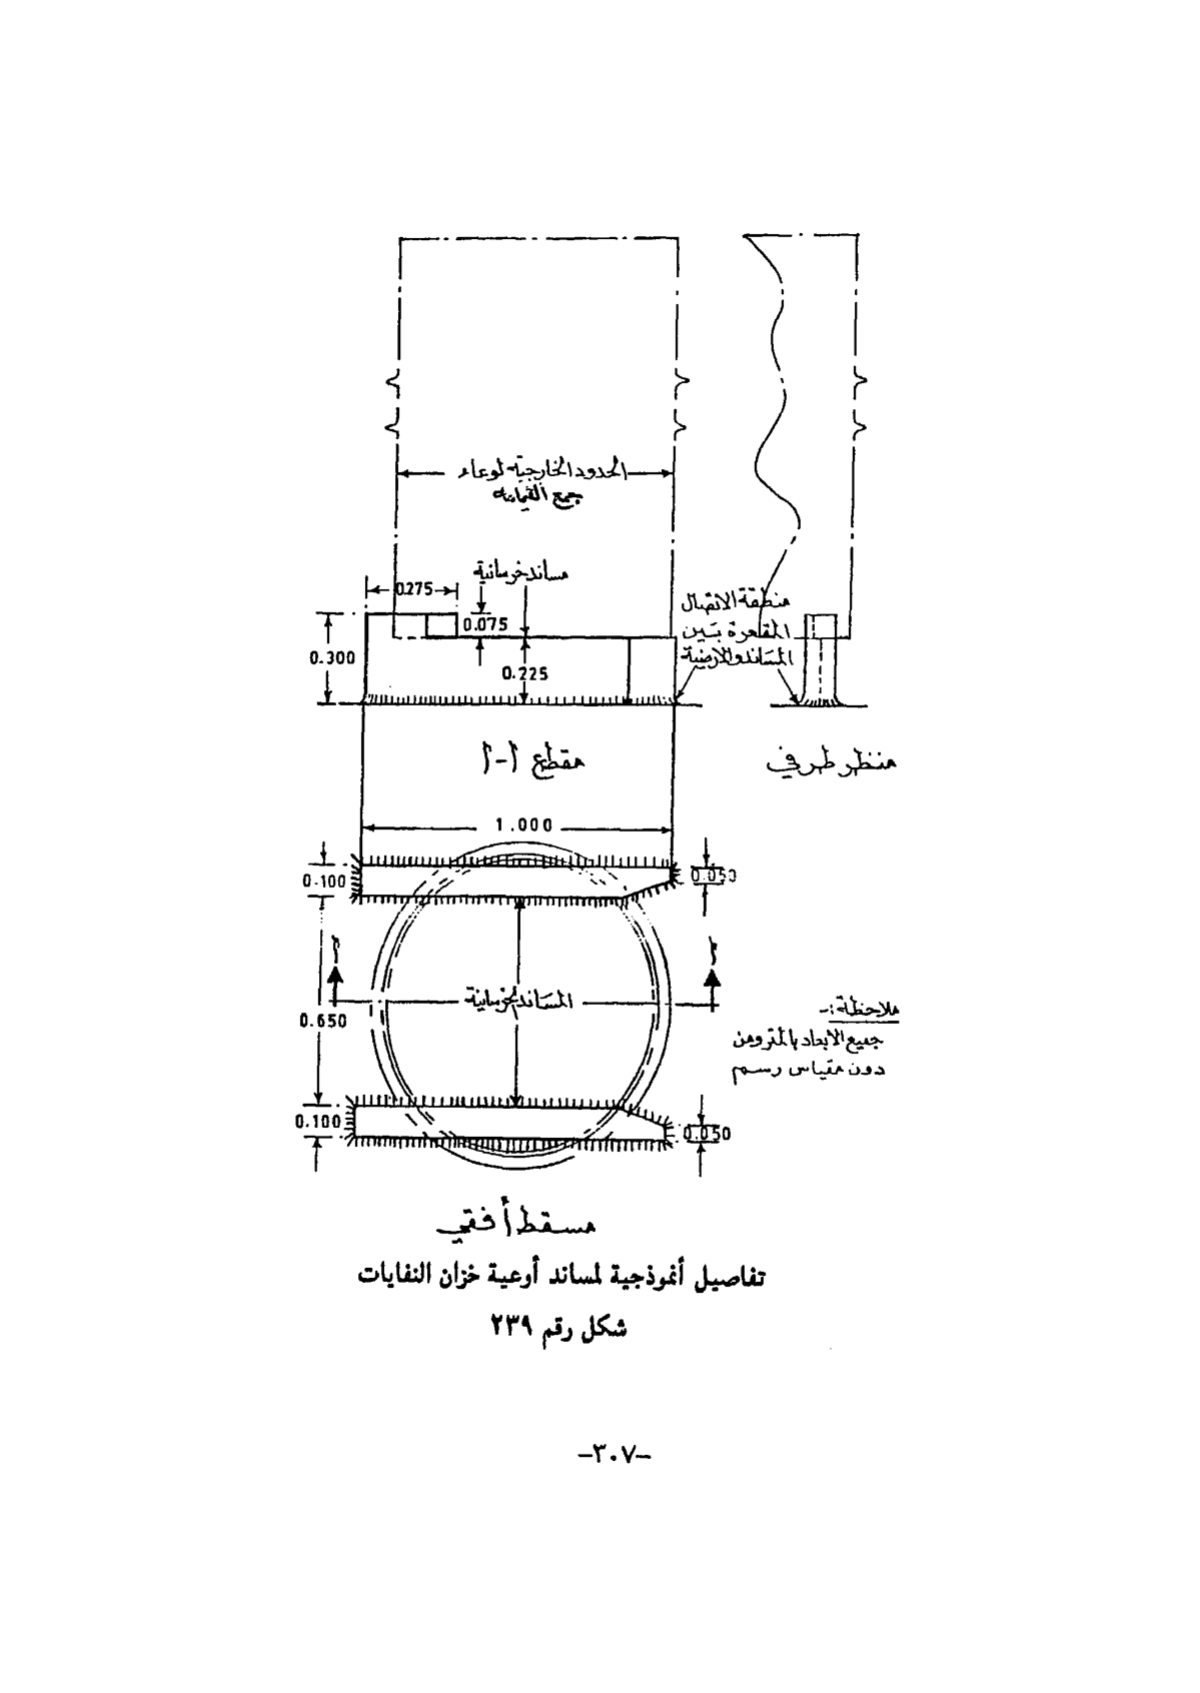 الحدود الخارجية لوعاء
جمع القمامة
مساند خرسانية
0.275
0.075
0.300
0.225
منطقة الاتصال
المقعرة بين
المساند والارضية
مقطع أ-أ
منظر طرفي
1.000
0.100
0.050
أ
أ
المساند الخرسانية
0.650
ملاحظة:-
جميع الابعاد بالمتر ومن
دون مقياس رسم
0.100
0.050
مسقط أفقي
تفاصيل أنموذجية لمساند أوعية خزان النفايات
شكل رقم ٢٣٩
-٣٠٧-